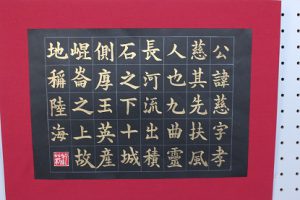 公諱慈字孝
慈其先扶風
人也九曲靈
長河流出積
石之下十城
側摩王英產
崐崙之上故
地稱陸海